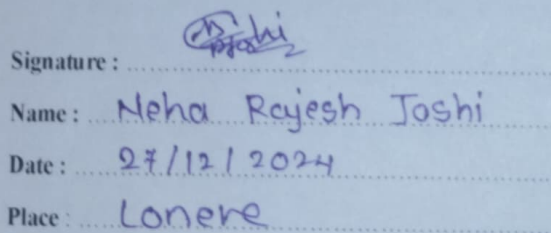 Signature :
Name : Neha Rajesh Joshi
Date : 27/12/2024
Place : Lonere